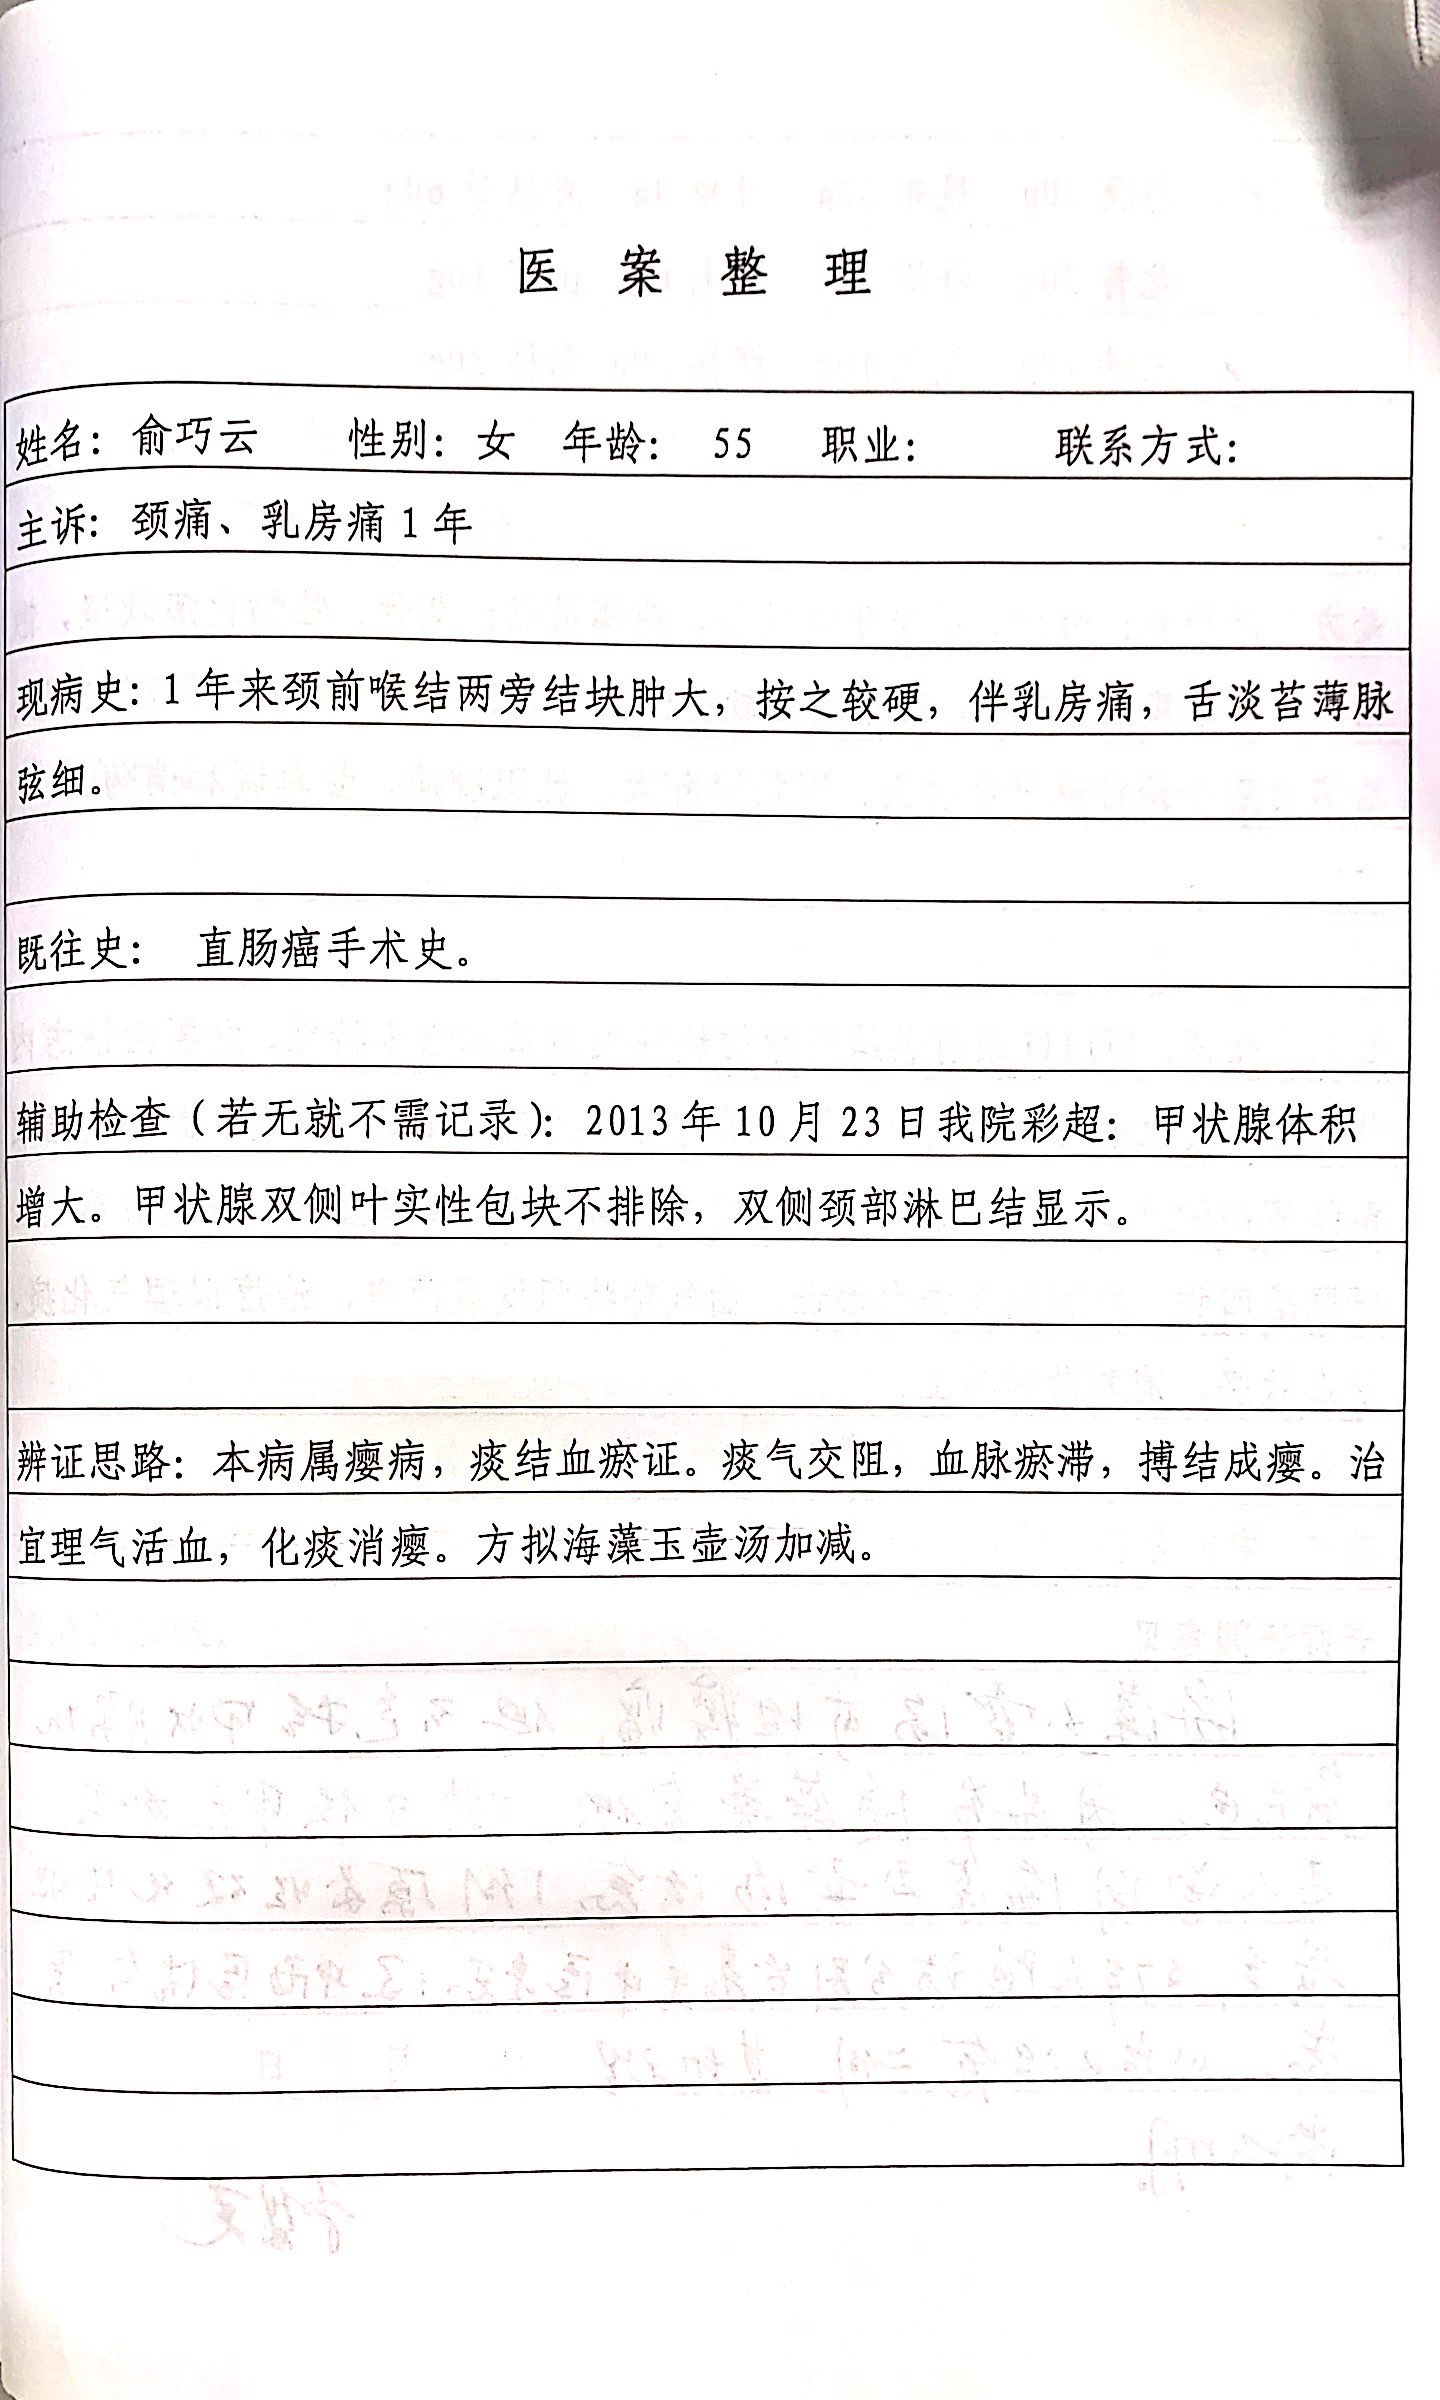 医 案 整 理
姓名：俞巧云 性别：女 年龄： 55 职业： 联系方式：
主诉：颈痛、乳房痛 1 年
现病史：1 年来颈前喉结两旁结块肿大，按之较硬，伴乳房痛，舌淡苔薄脉
弦细。
既往史： 直肠癌手术史。
辅助检查（若无就不需记录）：2013 年 10 月 23 日我院彩超：甲状腺体积
增大。甲状腺双侧叶实性包块不排除，双侧颈部淋巴结显示。
辨证思路：本病属瘿病，痰结血瘀证。痰气交阻，血脉瘀滞，搏结成瘿。治
宜理气活血，化痰消瘿。方拟海藻玉壶汤加减。